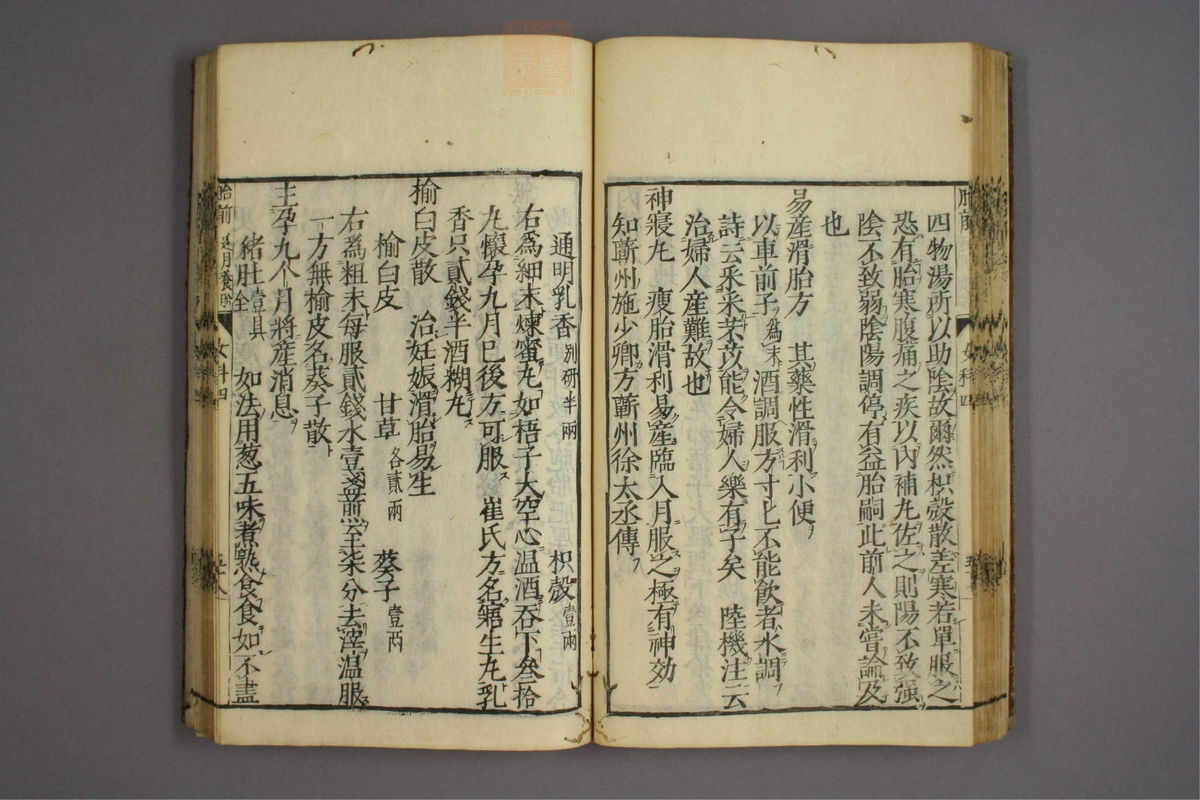 胎前
女科四
四物湯所以助陰故爾然枳殼散差寒若單服之
恐有胎寒腹痛之疾以內補丸佐之則陽不致强
陰不致弱陰陽調停有益胎嗣此前人未嘗論及
也
易産滑胎方　其藥性滑利小便
以車前子爲末酒調服方寸匕不能飲者水調
詩云采采芣苢能令婦人樂有子矣　陸機注云
治婦人産難故也
神寢丸　瘦胎滑利易産臨入月服之極有神効
知蘄州施少卿方蘄州徐太丞傳
通明乳香別研半兩　枳殼壹兩
右爲細末煉蜜丸如梧子大空心温酒吞下叁拾
丸懷孕九月已後方可服　崔氏方名
生丸乳
香只貳錢半酒糊丸
榆白皮散　治妊娠滑胎易生
榆白皮　甘草各貳兩　葵子壹兩
右爲粗末每服貳錢水壹盞煎至柒分去滓温服
一方無榆皮名葵子散
主孕九个月將産消息
豬肚壹具全　如法用葱五味煮熟食食如不盡
胎前
月養
女科四